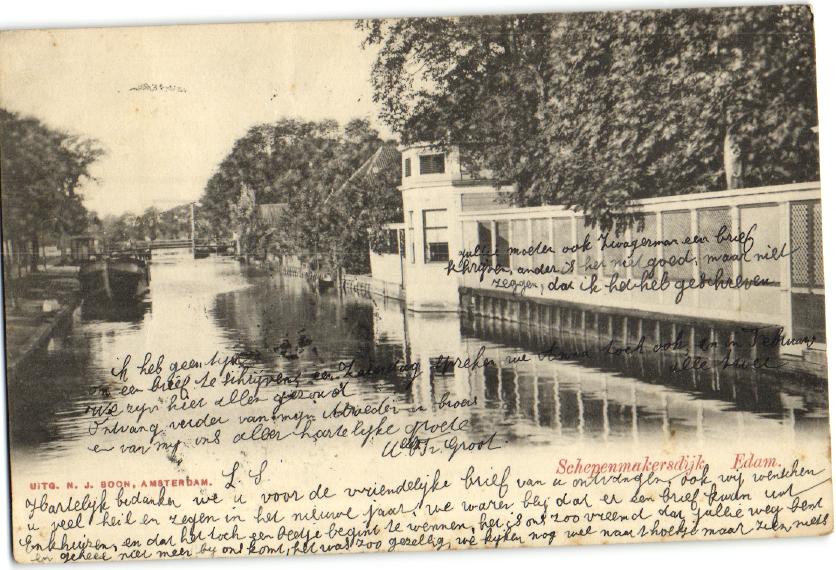 jullie moeten ook Zwagerman een brief
schrijven, anders is het niet goed, maar niet
zeggen, dat ik het heb geschreven
ik heb geen tijd
om een brief te schrijven en Zaterdag spreken we Anna toch ook en in Februari
alle twee
we zijn hier allen gezond
Ontvang verder van mijn broeder
en van mij ons aller hartelijke groete
Groot
Schepenmakersdijk Edam.
UITG. N. J. BOON, AMSTERDAM.
L S
Hartelijk bedanken we u voor de vriendelijke brief van u ontvangen, ook wij wenschen
u veel heil en zegen in het nieuwe jaar, we waren blij dat er een brief kwam uit
Enkhuizen, en dat het toch een beetje begint te wennen, het is ons zoo vreemd dat jullie weg bent
en geheel niet meer bij ons komt, het was zoo gezellig, we kijken nog wel naar t hoekje maar zien niets